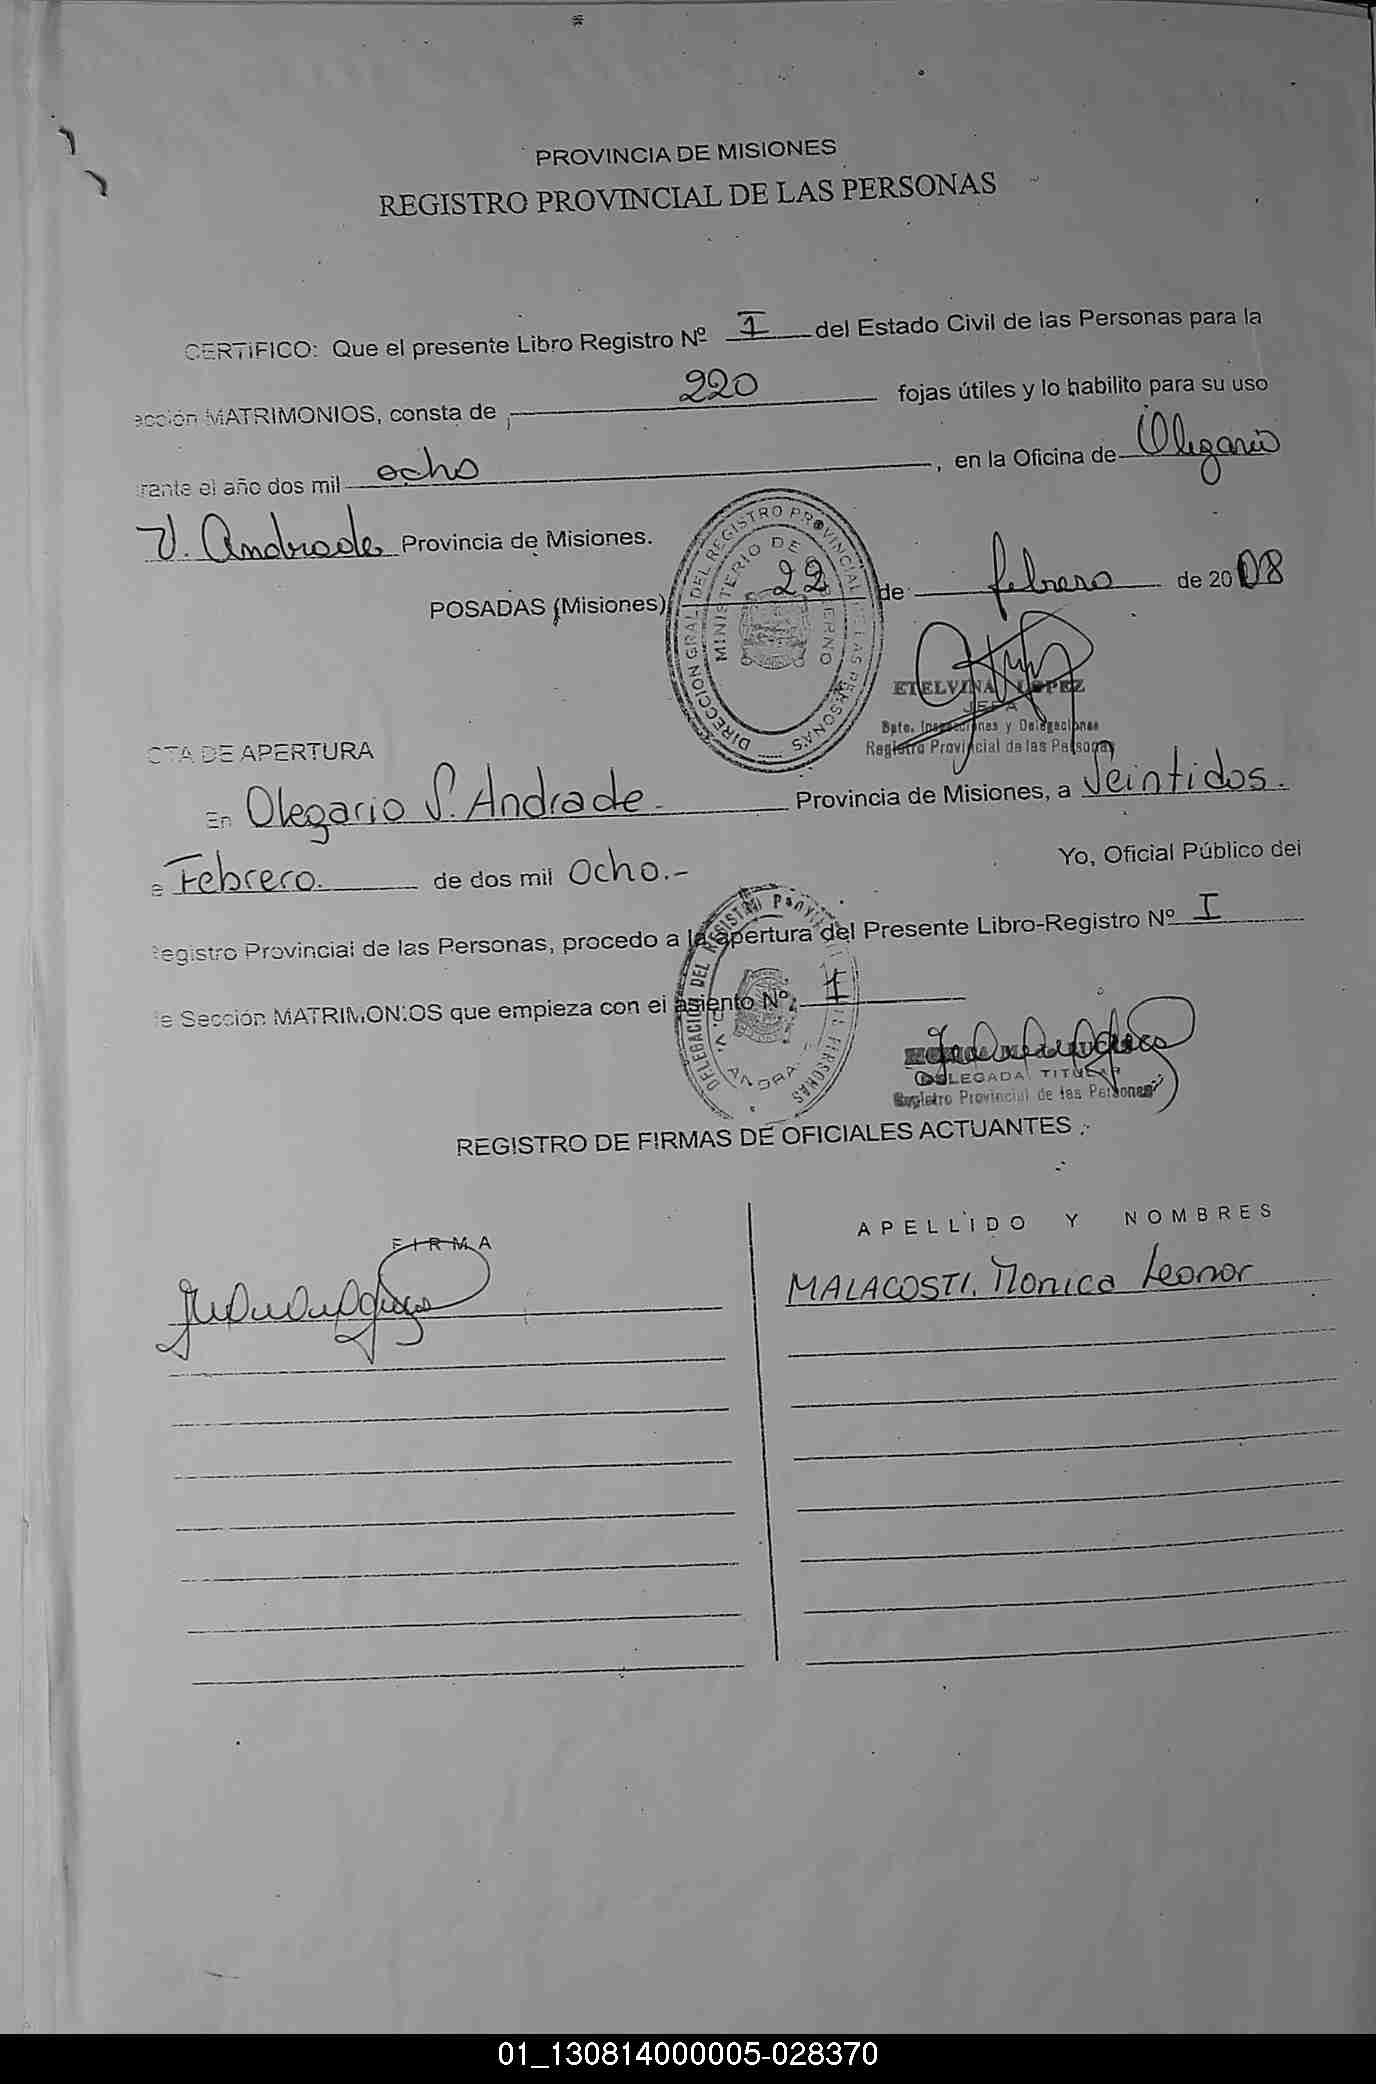 PROVINCIA DE MISIONES
REGISTRO PROVINCIAL DE LAS PERSONAS
CERTIFICO: Que el presente Libro Registro Nº I del Estado Civil de las Personas para la
ección MATRIMONIOS, consta de 220 fojas útiles y lo habilito para su uso
rante el año dos mil ocho, en la Oficina de Olegario
V. Andrade Provincia de Misiones.
POSADAS (Misiones) 22 de febrero de 2008
DIRECCION GRAL DEL REGISTRO PROVINCIAL DE LAS PERSONAS
MINISTERIO DE GOBIERNO
ETELVINA LOPEZ
JEFA
Dpto. Inspecciones y Delegaciones
Registro Provincial de las Personas
CTA DE APERTURA
En Olegario V. Andrade. Provincia de Misiones, a Veintidos.
e Febrero. de dos mil Ocho.- Yo, Oficial Público del
Registro Provincial de las Personas, procedo a la apertura del Presente Libro-Registro Nº I
e Sección MATRIMONIOS que empieza con el asiento Nº: 1
DELEGACION DEL REGISTRO PROVINCIAL PERSONAS
DELEGADA TITULAR
Registro Provincial de las Personas
REGISTRO DE FIRMAS DE OFICIALES ACTUANTES
FIRMA
APELLIDO Y NOMBRES
MALACOSTI. Monica Leonor
01_130814000005-028370